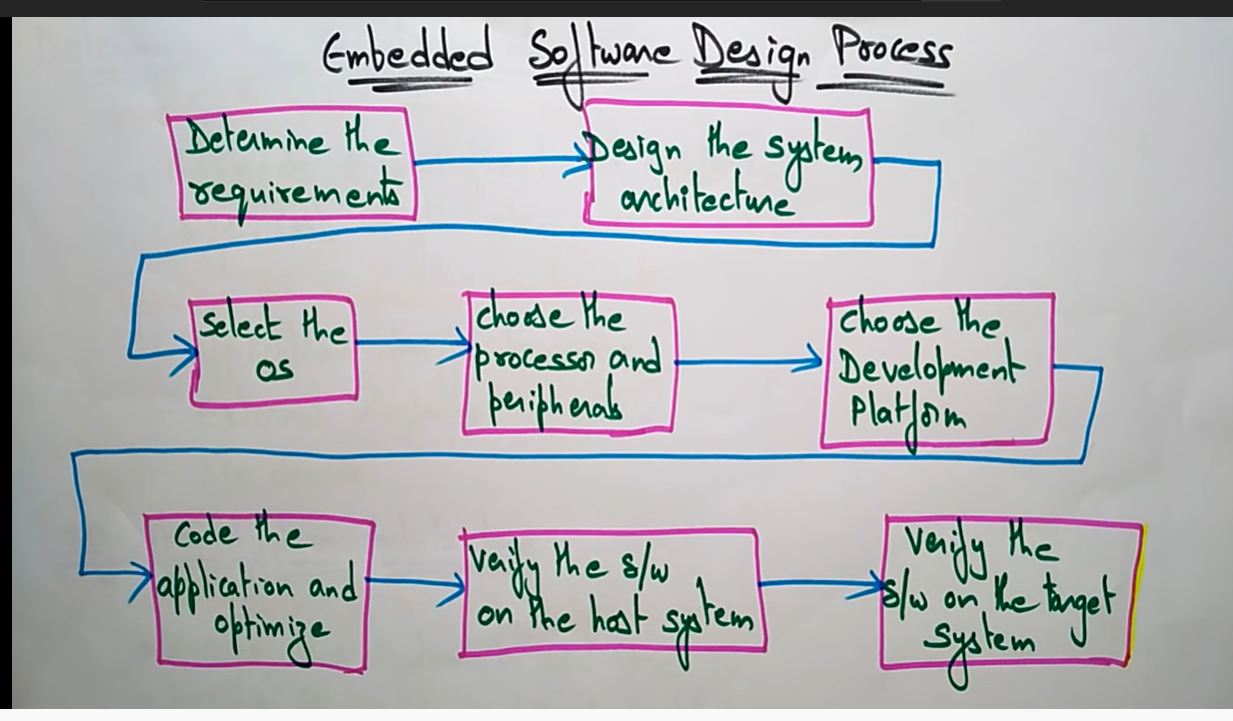 Embedded Software Design Process
Determine the
requirements
Design the system
architecture
Select the
OS
choose the
processor and
peripherals
choose the
Development
Platform
Code the
application and
optimize
Verify the s/w
on the host system
Verify the
s/w on the target
system